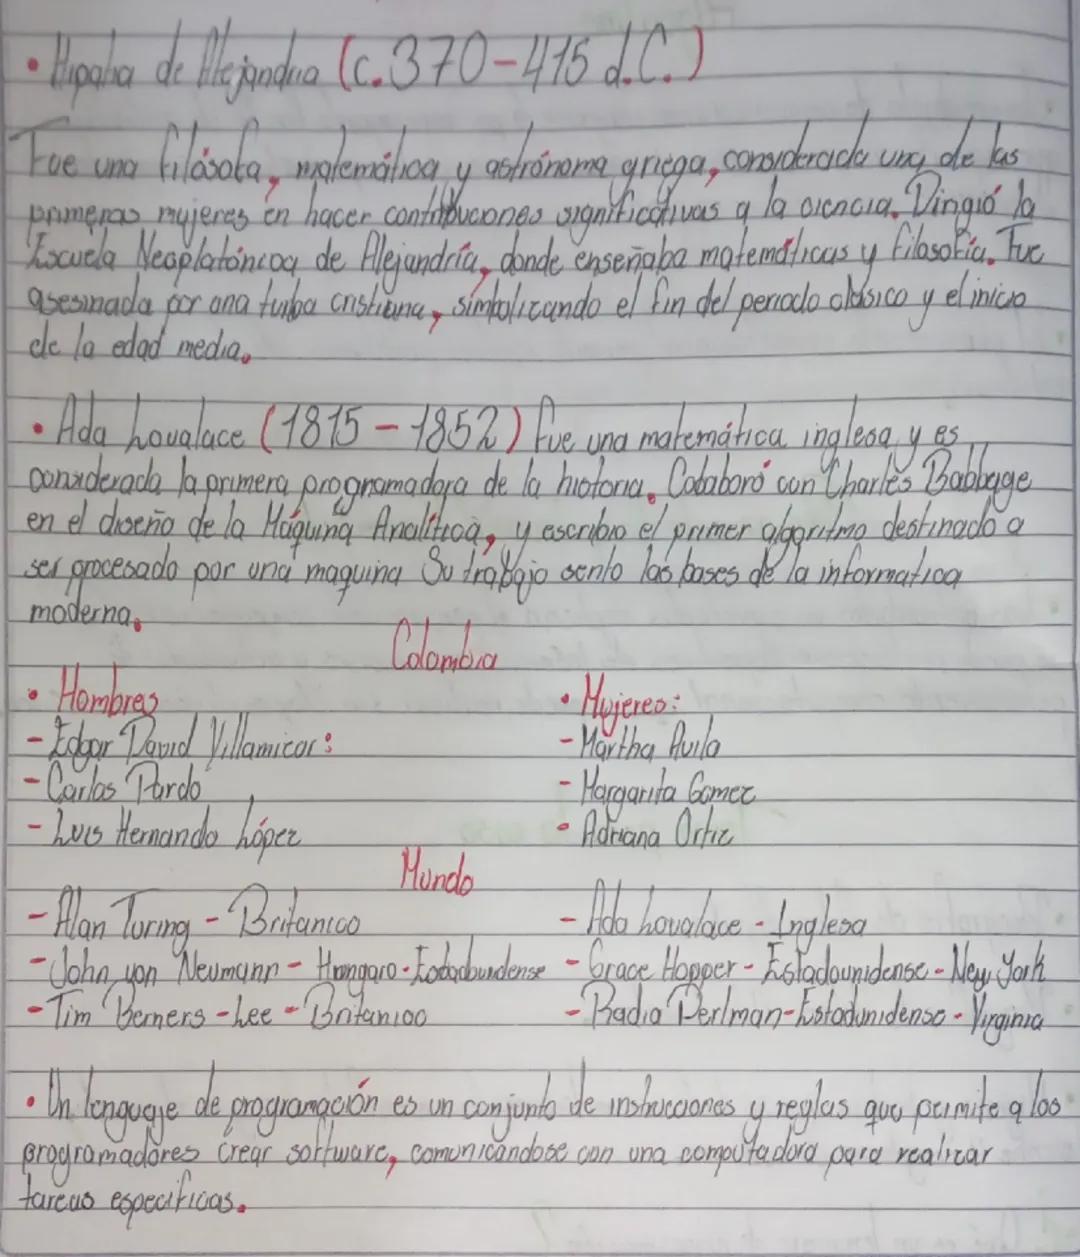 • Hipatia de Alejandria (c.370-415 d.C.)
Fue una filósofa, matemática y astrónoma griega, considerada una de las
primeras mujeres en hacer contribuciones significativas a la ciencia. Dirigió la
Escuela Neoplatónica de Alejandría, donde enseñaba matemáticas y filosofía. Fue
asesinada por una turba cristiana, simbolizando el fin del periodo clásico y el inicio
de la edad media.
• Ada Lovalace (1815-1852) fue una matemática inglesa y es
considerada la primera programadora de la historia. Colaboró con Charles Babbage
en el diseño de la Máquina Analítica, y escribio el primer algoritmo destinado a
ser procesado por una maquina Su trabajo sento las bases de la informatica
moderna.
Colombia
• Hombres • Mujeres:
- Edgar David Villamizar: - Martha Avila
- Carlos Pardo - Margarita Gomez
- Luis Hernando López • Adriana Ortiz
Mundo
- Alan Turing - Britanico - Ada Lovalace - Inglesa
- John von Neumann - Hungaro - Estadounidense - Grace Hopper - Estadounidense - New York
- Tim Berners - Lee - Britanico - Radia Perlman - Estadunidense - Virginia
• Un lenguaje de programación es un conjunto de instrucciones y reglas que permite a los
programadores crear software, comunicándose con una computadora para realizar
tareas especificas.